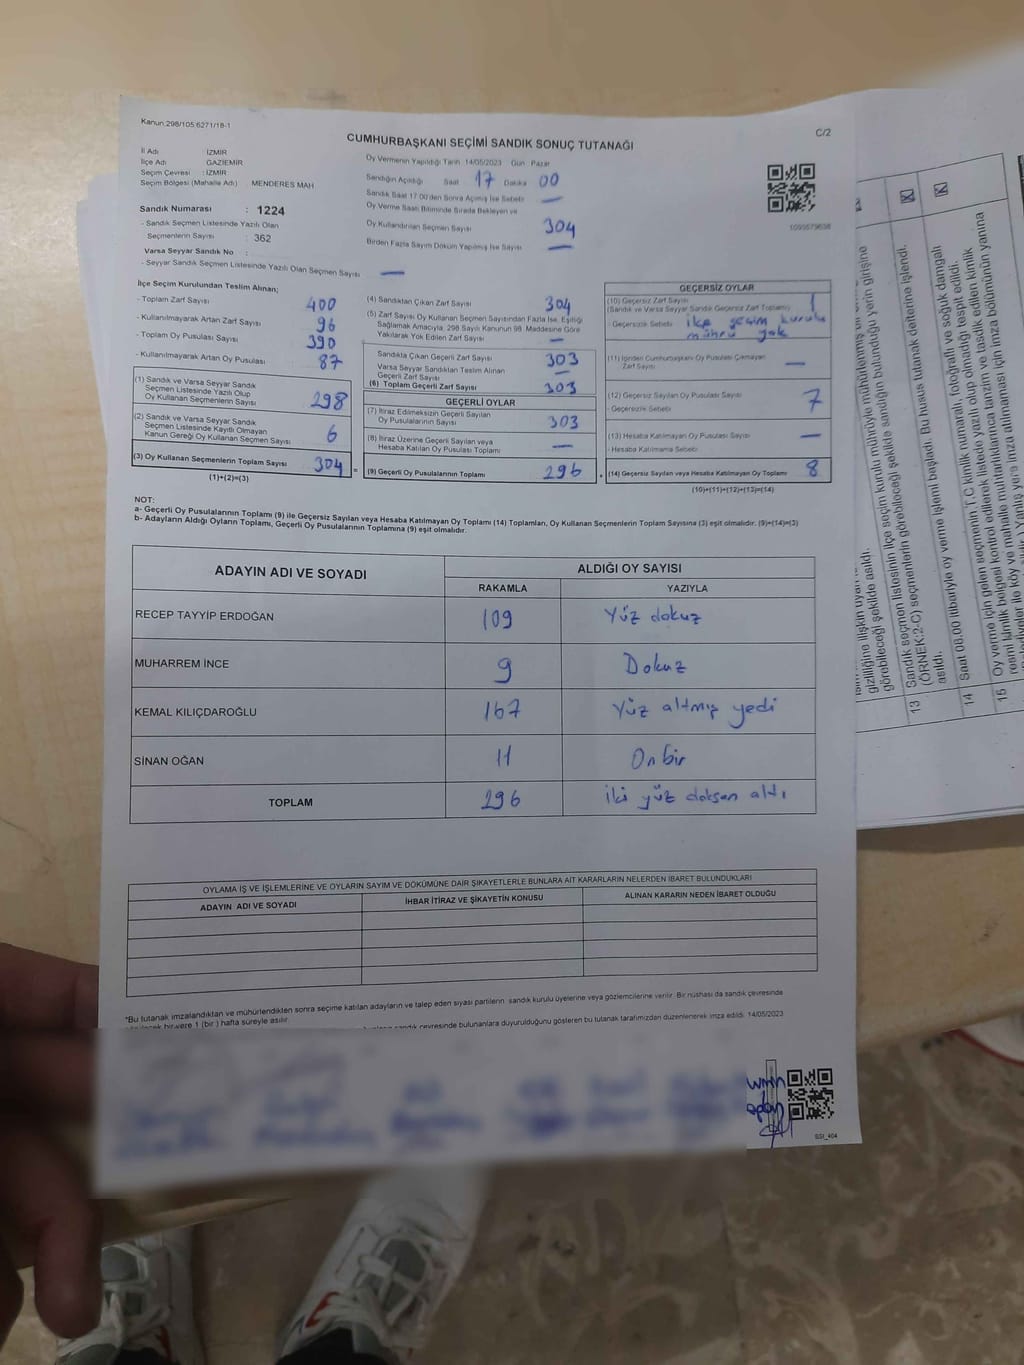 Kanun:298/105.6271/18-1
C/2
CUMHURBAŞKANI SEÇİMİ SANDIK SONUÇ TUTANAĞI
İl Adı : İZMİR
İlçe Adı GAZİEMİR
Seçim Çevresi : İZMİR
Seçim Bölgesi (Mahalle Adı) MENDERES MAH
Sandık Numarası : 1224
- Sandık Seçmen Listesinde Yazılı Olan
Seçmenlerin Sayısı : 362
Varsa Seyyar Sandık No :
- Seyyar Sandık Seçmen Listesinde Yazılı Olan Seçmen Sayısı —
Oy Vermenin Yapıldığı Tarih 14/05/2023 Gün Pazar
Sandığın Açıldığı Saat 17 Dakika 00
Sandık Saat 17:00'den Sonra Açılmış İse Sebebi —
Oy Verme Saati Bitiminde Sırada Bekleyen ve
Oy Kullandırılan Seçmen Sayısı 304
Birden Fazla Sayım Döküm Yapılmış İse Sayısı —
İlçe Seçim Kurulundan Teslim Alınan;
- Toplam Zarf Sayısı 400
- Kullanılmayarak Artan Zarf Sayısı 96
- Toplam Oy Pusulası Sayısı 390
- Kullanılmayarak Artan Oy Pusulası 87
(1) Sandık ve Varsa Seyyar Sandık
Seçmen Listesinde Yazılı Olup
Oy Kullanan Seçmenlerin Sayısı 298
(2) Sandık ve Varsa Seyyar Sandık
Seçmen Listesinde Kayıtlı Olmayan
Kanun Gereği Oy Kullanan Seçmen Sayısı 6
(3) Oy Kullanan Seçmenlerin Toplam Sayısı 304
(1)+(2)=(3)
(4) Sandıktan Çıkan Zarf Sayısı 304
(5) Zarf Sayısı Oy Kullanan Seçmen Sayısından Fazla İse, Eşitliği
Sağlamak Amacıyla, 298 Sayılı Kanunun 98. Maddesine Göre
Yakılarak Yok Edilen Zarf Sayısı —
Sandıkta Çıkan Geçerli Zarf Sayısı 303
Varsa Seyyar Sandıktan Teslim Alınan
Geçerli Zarf Sayısı —
(6) Toplam Geçerli Zarf Sayısı 303
GEÇERLİ OYLAR
(7) İtiraz Edilmeksizin Geçerli Sayılan
Oy Pusulalarının Sayısı 303
(8) İtiraz Üzerine Geçerli Sayılan veya
Hesaba Katılan Oy Pusulası Toplamı —
= (9) Geçerli Oy Pusulalarının Toplamı 296
GEÇERSİZ OYLAR
(10) Geçersiz Zarf Sayısı
(Sandık ve Varsa Seyyar Sandık Geçersiz Zarf Toplamı) 1
- Geçersizlik Sebebi ilçe seçim kurulu
mührü yok
(11) İçinden Cumhurbaşkanı Oy Pusulası Çıkmayan
Zarf Sayısı —
(12) Geçersiz Sayılan Oy Pusulası Sayısı 7
- Geçersizlik Sebebi
(13) Hesaba Katılmayan Oy Pusulası Sayısı —
- Hesaba Katılmama Sebebi
+ (14) Geçersiz Sayılan veya Hesaba Katılmayan Oy Toplamı 8
(10)+(11)+(12)+(13)=(14)
NOT:
a- Geçerli Oy Pusulalarının Toplamı (9) ile Geçersiz Sayılan veya Hesaba Katılmayan Oy Toplamı (14) Toplamları, Oy Kullanan Seçmenlerin Toplam Sayısına (3) eşit olmalıdır. (9)+(14)=(3)
b- Adayların Aldığı Oyların Toplamı, Geçerli Oy Pusulalarının Toplamına (9) eşit olmalıdır.
ADAYIN ADI VE SOYADI ALDIĞI OY SAYISI
RAKAMLA YAZIYLA
RECEP TAYYİP ERDOĞAN 109 Yüz dokuz
MUHARREM İNCE 9 Dokuz
KEMAL KILIÇDAROĞLU 167 Yüz altmış yedi
SİNAN OĞAN 11 On bir
TOPLAM 296 iki yüz doksan altı
OYLAMA İŞ VE İŞLEMLERİNE VE OYLARIN SAYIM VE DÖKÜMÜNE DAİR ŞİKAYETLERLE BUNLARA AİT KARARLARIN NELERDEN İBARET BULUNDUKLARI
ADAYIN ADI VE SOYADI İHBAR İTİRAZ VE ŞİKAYETİN KONUSU ALINAN KARARIN NEDEN İBARET OLDUĞU
*Bu tutanak imzalandıktan ve mühürlendikten sonra seçime katılan adayların ve talep eden siyasi partilerin sandık kurulu üyelerine veya gözlemcilerine verilir. Bir nüshası da sandık çevresinde
bir yere 1 (bir) hafta süreyle asılır.
sandık çevresinde bulunanlara duyurulduğunu gösteren bu tutanak tarafımızdan düzenlenerek imza edildi. 14/05/2023
SSI_404
gizliliğine ilişkin
görebileceği şekilde asıldı.
ilçe seçim kurulu mührüyle mühürlenmiş
13 Sandık seçmen listesinin ilçe seçim kurulu mührüyle
(ÖRNEK:2-C) seçmenlerin görebileceği şekilde sandığın bulunduğu yerin girişine
asıldı.
14 Saat 08.00 itibariyle oy verme işlemi başladı. Bu husus tutanak defterine işlendi.
15 Oy verme için gelen seçmenin, T.C kimlik numaralı, fotoğraflı ve soğuk damgalı
resmi kimlik belgesi kontrol edilerek listede yazılı olup olmadığı tespit edildi.